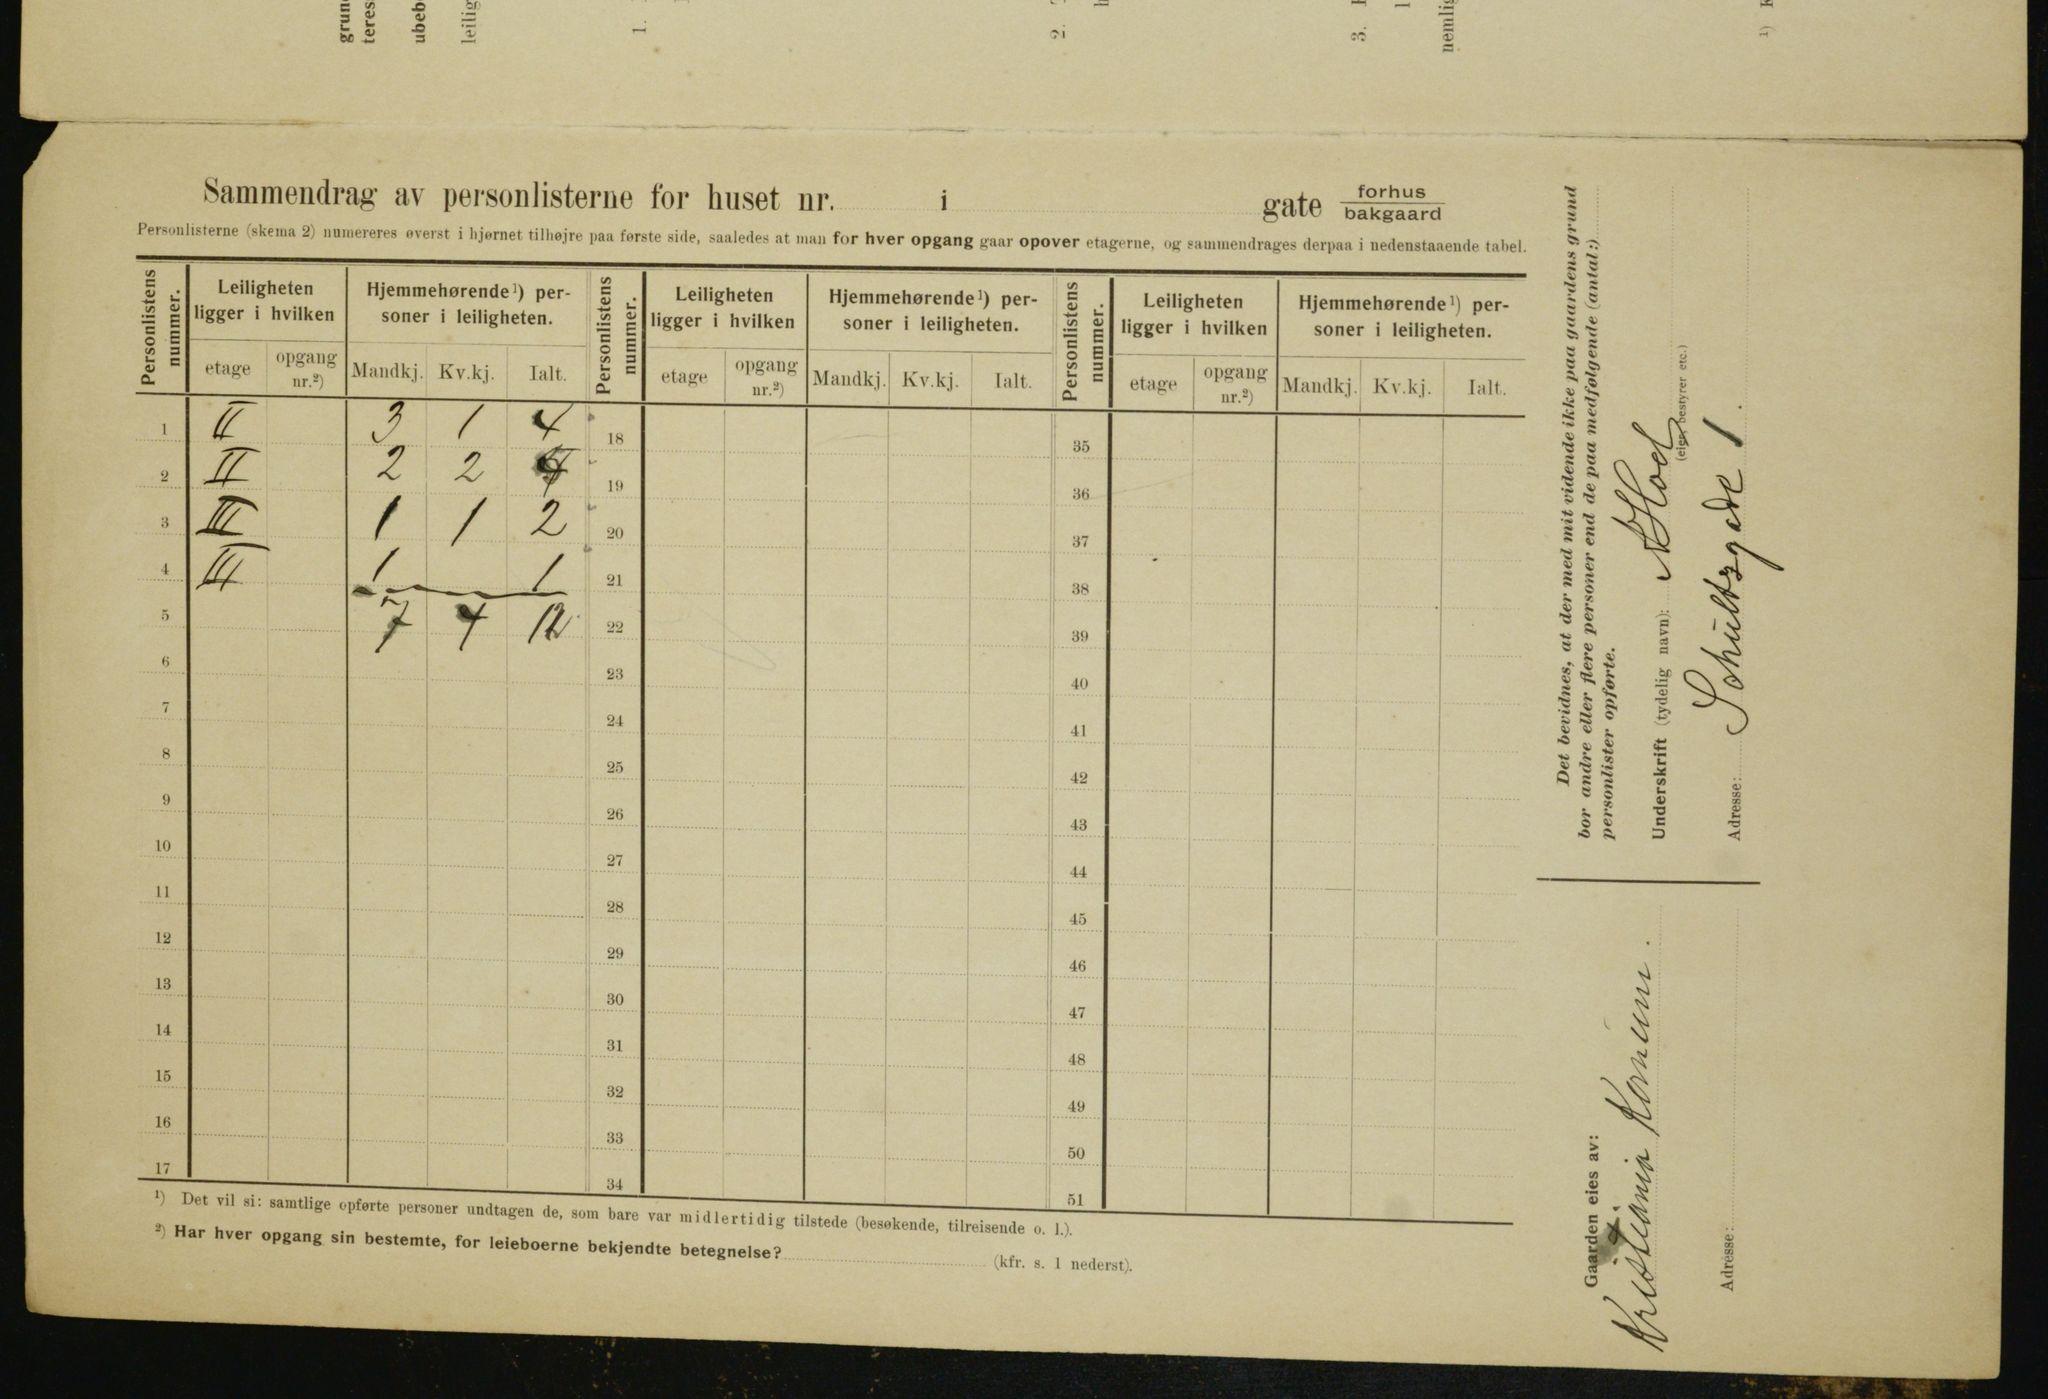 grun
teres
ubeb
leilig
1.
2.
3.
nemlig
¹)
Sammendrag av personlisterne for huset nr. i gate forhus
bakgaard
Personlisterne (skema 2) numereres øverst i hjørnet tilhøjre paa første side, saaledes at man for hver opgang gaar opover etagerne, og sammendrages derpaa i nedenstaaende tabel.
Personlistens nummer. Leiligheten ligger i hvilken Hjemmehørende¹) personer i leiligheten. Personlistens nummer. Leiligheten ligger i hvilken Hjemmehørende¹) personer i leiligheten. Personlistens nummer. Leiligheten ligger i hvilken Hjemmehørende¹) personer i leiligheten.
etage opgang nr.²) Mandkj. Kv.kj. Ialt. etage opgang nr.²) Mandkj. Kv.kj. Ialt. etage opgang nr.²) Mandkj. Kv.kj. Ialt.
1 II 3 1 4 18 35
2 II 2 2 19 36
3 III 1 1 2 20 37
4 III 1 1 21 38
5 7 4 12 22 39
6 23 40
7 24 41
8 25 42
9 26 43
10 27 44
11 28 45
12 29 46
13 30 47
14 31 48
15 32 49
16 33 50
17 34 51
¹) Det vil si: samtlige opførte personer undtagen de, som bare var midlertidig tilstede (besøkende, tilreisende o. l.).
²) Har hver opgang sin bestemte, for leieboerne bekjendte betegnelse? (kfr. s. 1 nederst).
Det bevidnes, at der med mit vidende ikke paa gaardens grund
bor andre eller flere personer end de paa medfølgende (antal:)
personlister opførte.
Underskrift (tydelig navn):
(eier, bestyrer etc.)
Adresse: Schultzgade 1.
Gaarden eies av:
Kristiania Komun.
Adresse: